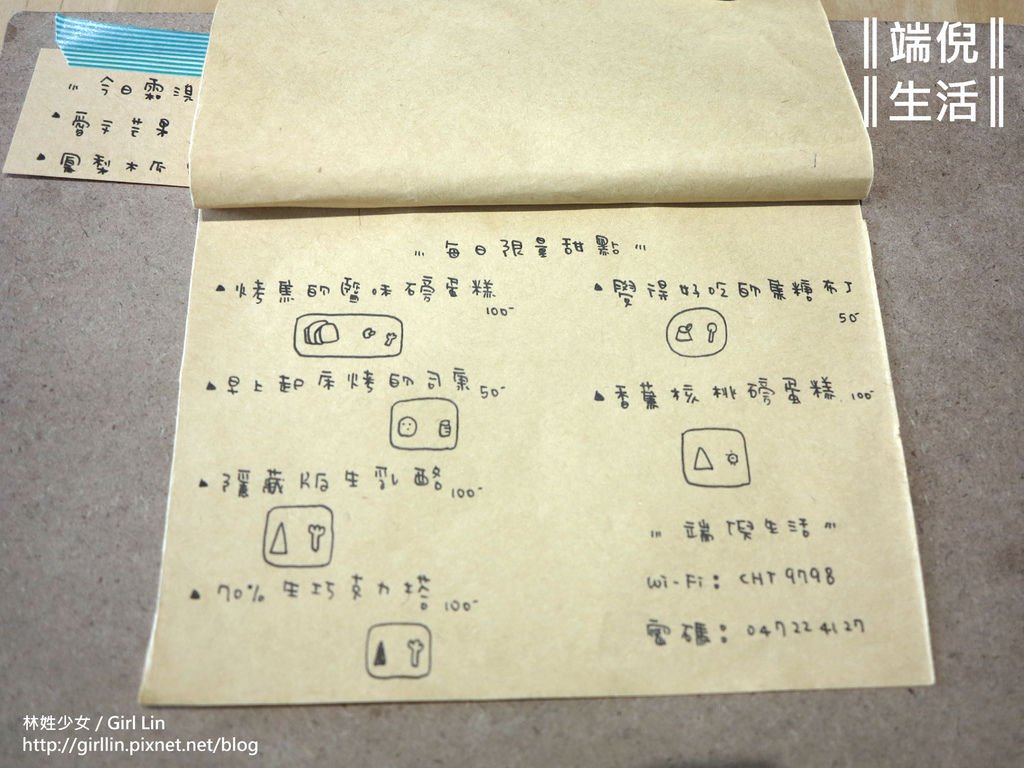 端倪
生活
〃 今日霜淇
▲ 雷夕芒果
▲ 鳳梨木瓜
〃 每日限量甜點 〃
▲ 烤焦的鹽味磅蛋糕
100-
▲ 早上起床烤的司康 50-
▲ 隱藏版生乳酪 100-
▲ 70% 生巧克力塔 100-
▲ 覺得好吃的焦糖布丁
50-
▲ 香蕉核桃磅蛋糕 100-
〃 端倪生活 〃
Wi-Fi: CHT9798
密碼: 047224127
林姓少女 / Girl Lin
http://girllin.pixnet.net/blog